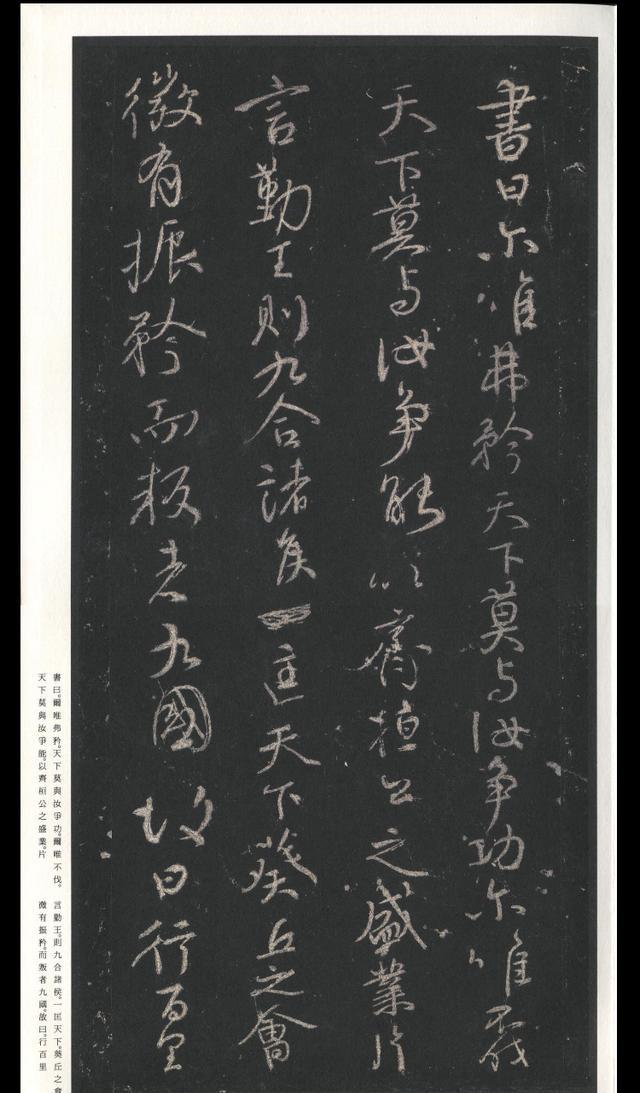 書曰尔唯弗矜天下莫与汝争功尔唯不伐
天下莫与汝争能以齊桓公之盛業片
言勤王則九合諸侯一匡天下葵丘之會
微有振矜而叛者九國故曰行百里
書曰。爾唯弗矜。天下莫與汝爭功。爾唯不伐。
天下莫與汝爭能。以齊桓公之盛業。片
言勤王。則九合諸侯。一匡天下。葵丘之會
微有振矜。而叛者九國。故曰。行百里